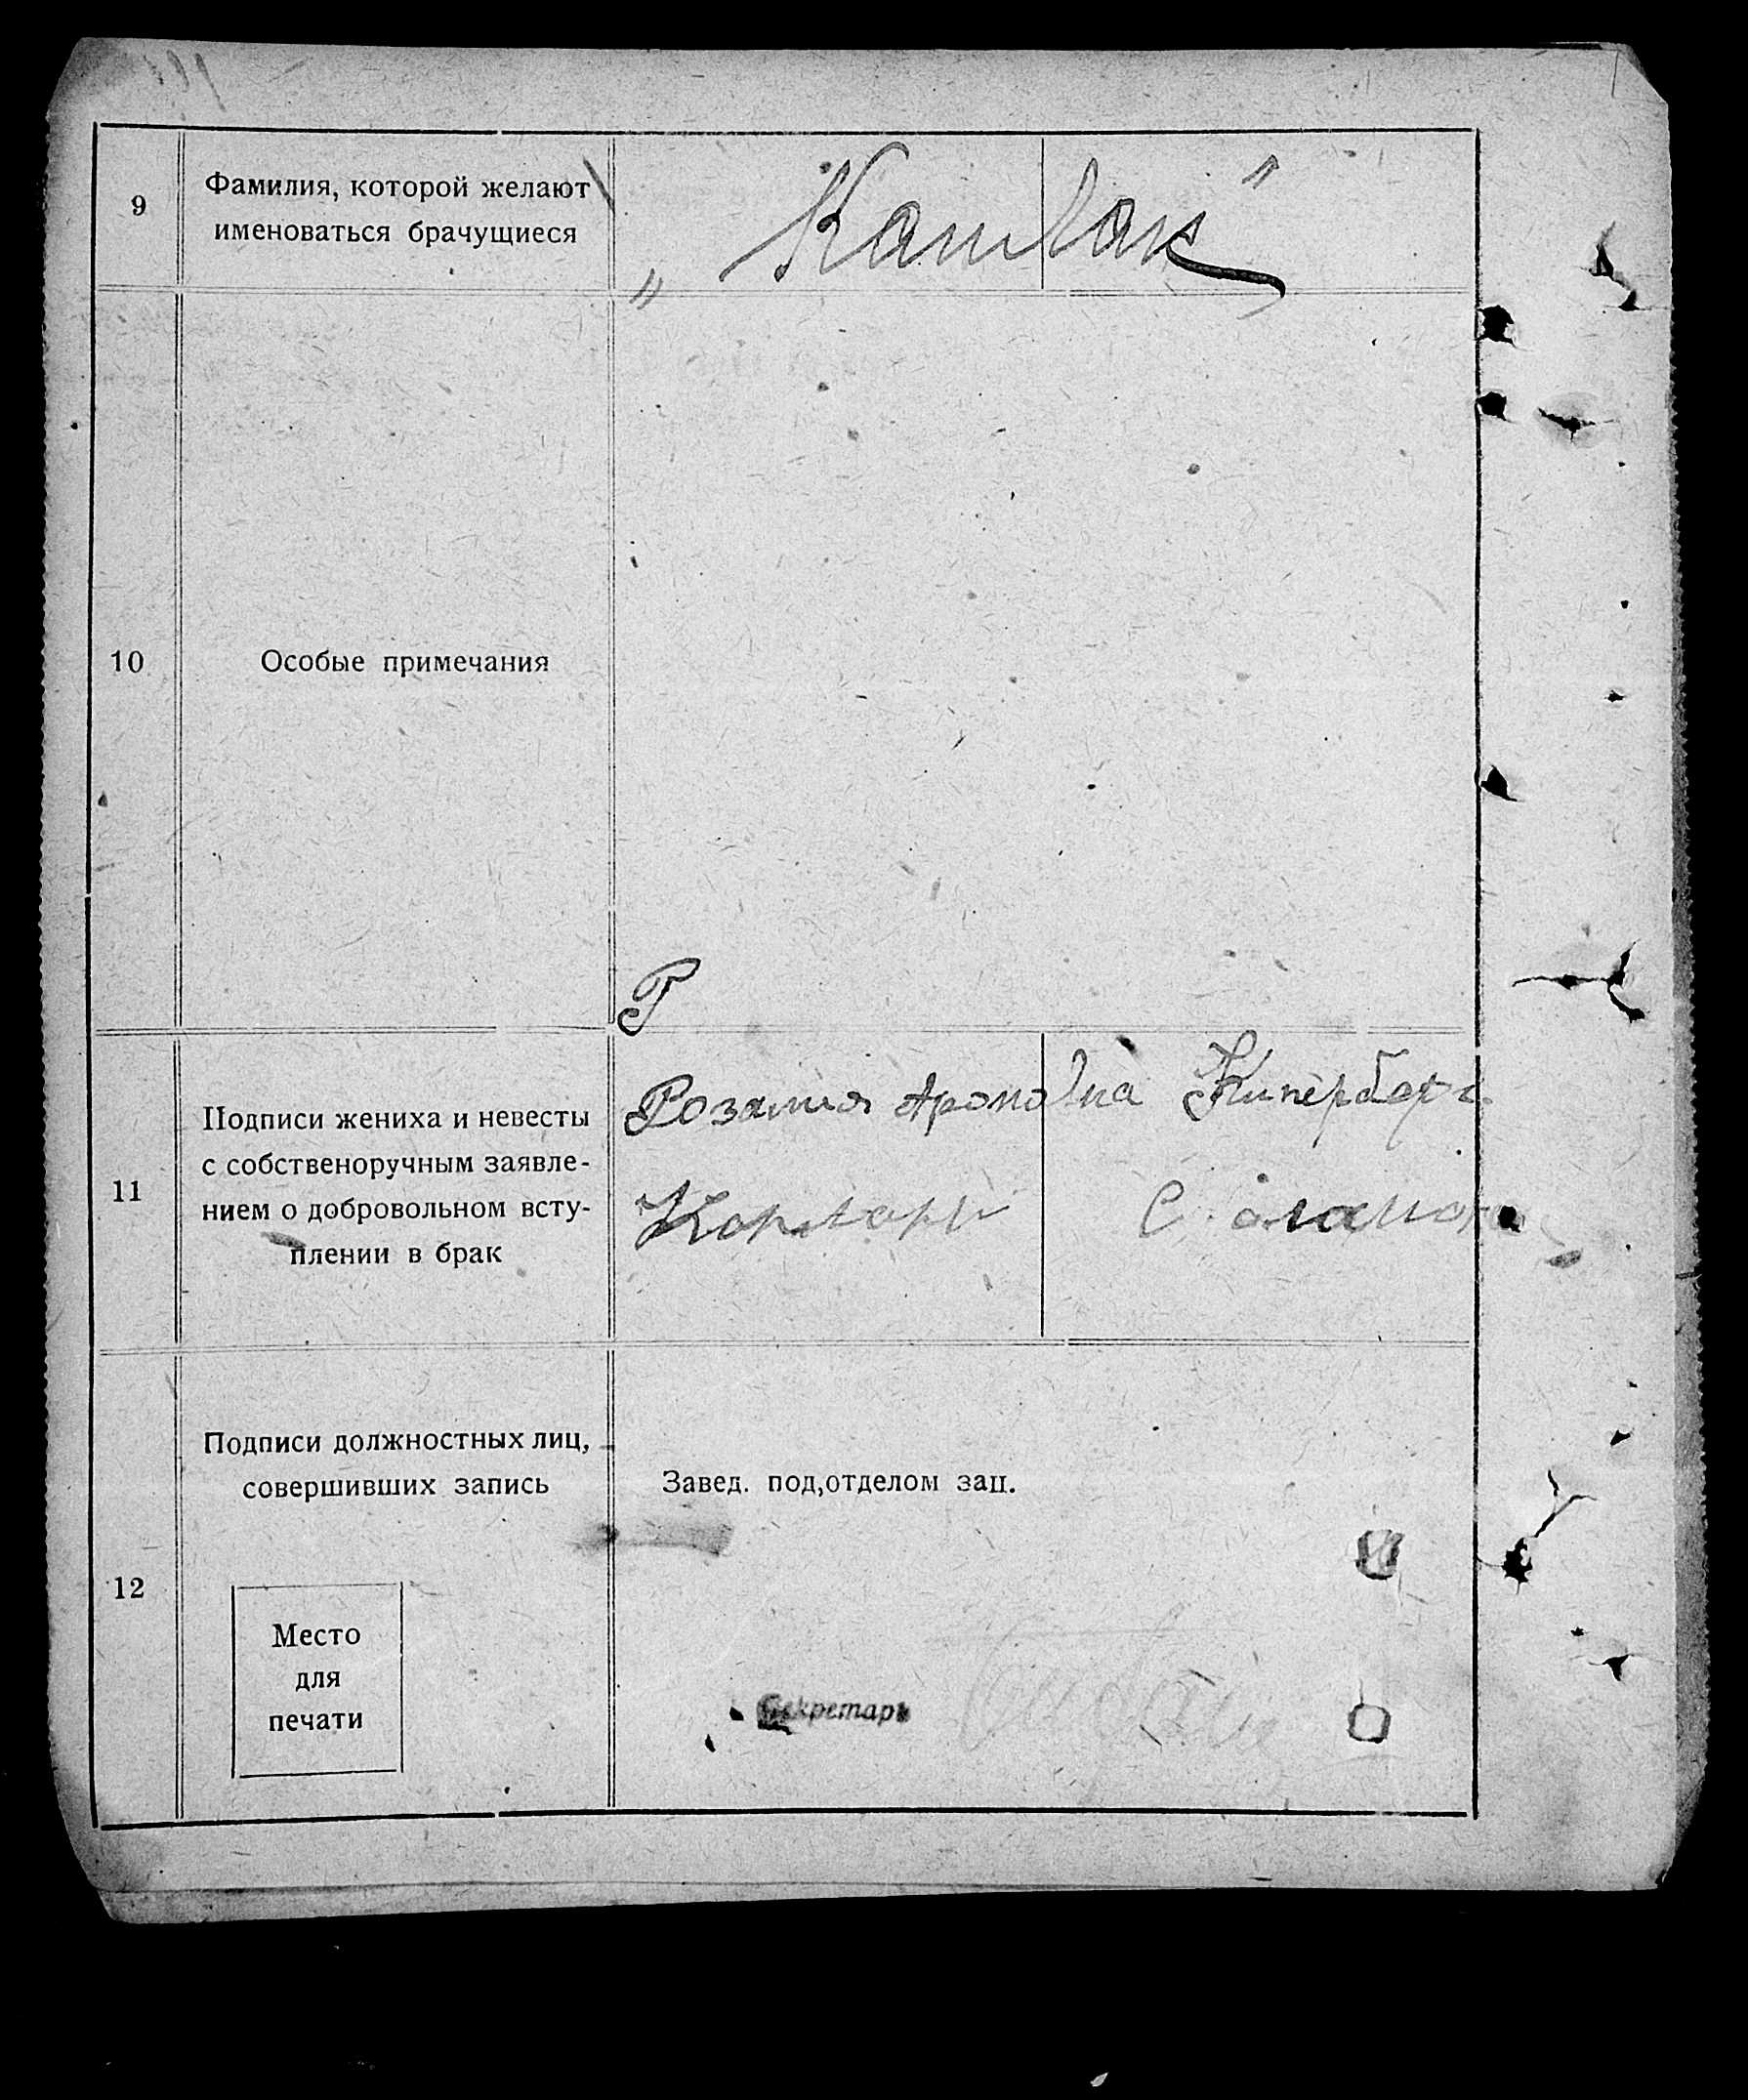 9
Фамилия, которой желают
именоваться брачущиеся
10
Особые примечания
Р
11
Подписи жениха и невесты
с собственоручным заявле-
нием о добровольном всту-
плении в брак
Розалия Ароновна Киперберг.
12
Подписи должностных лиц,
совершивших запись
Завед. под,отделом зац.
Место
для
печати
Секретарь